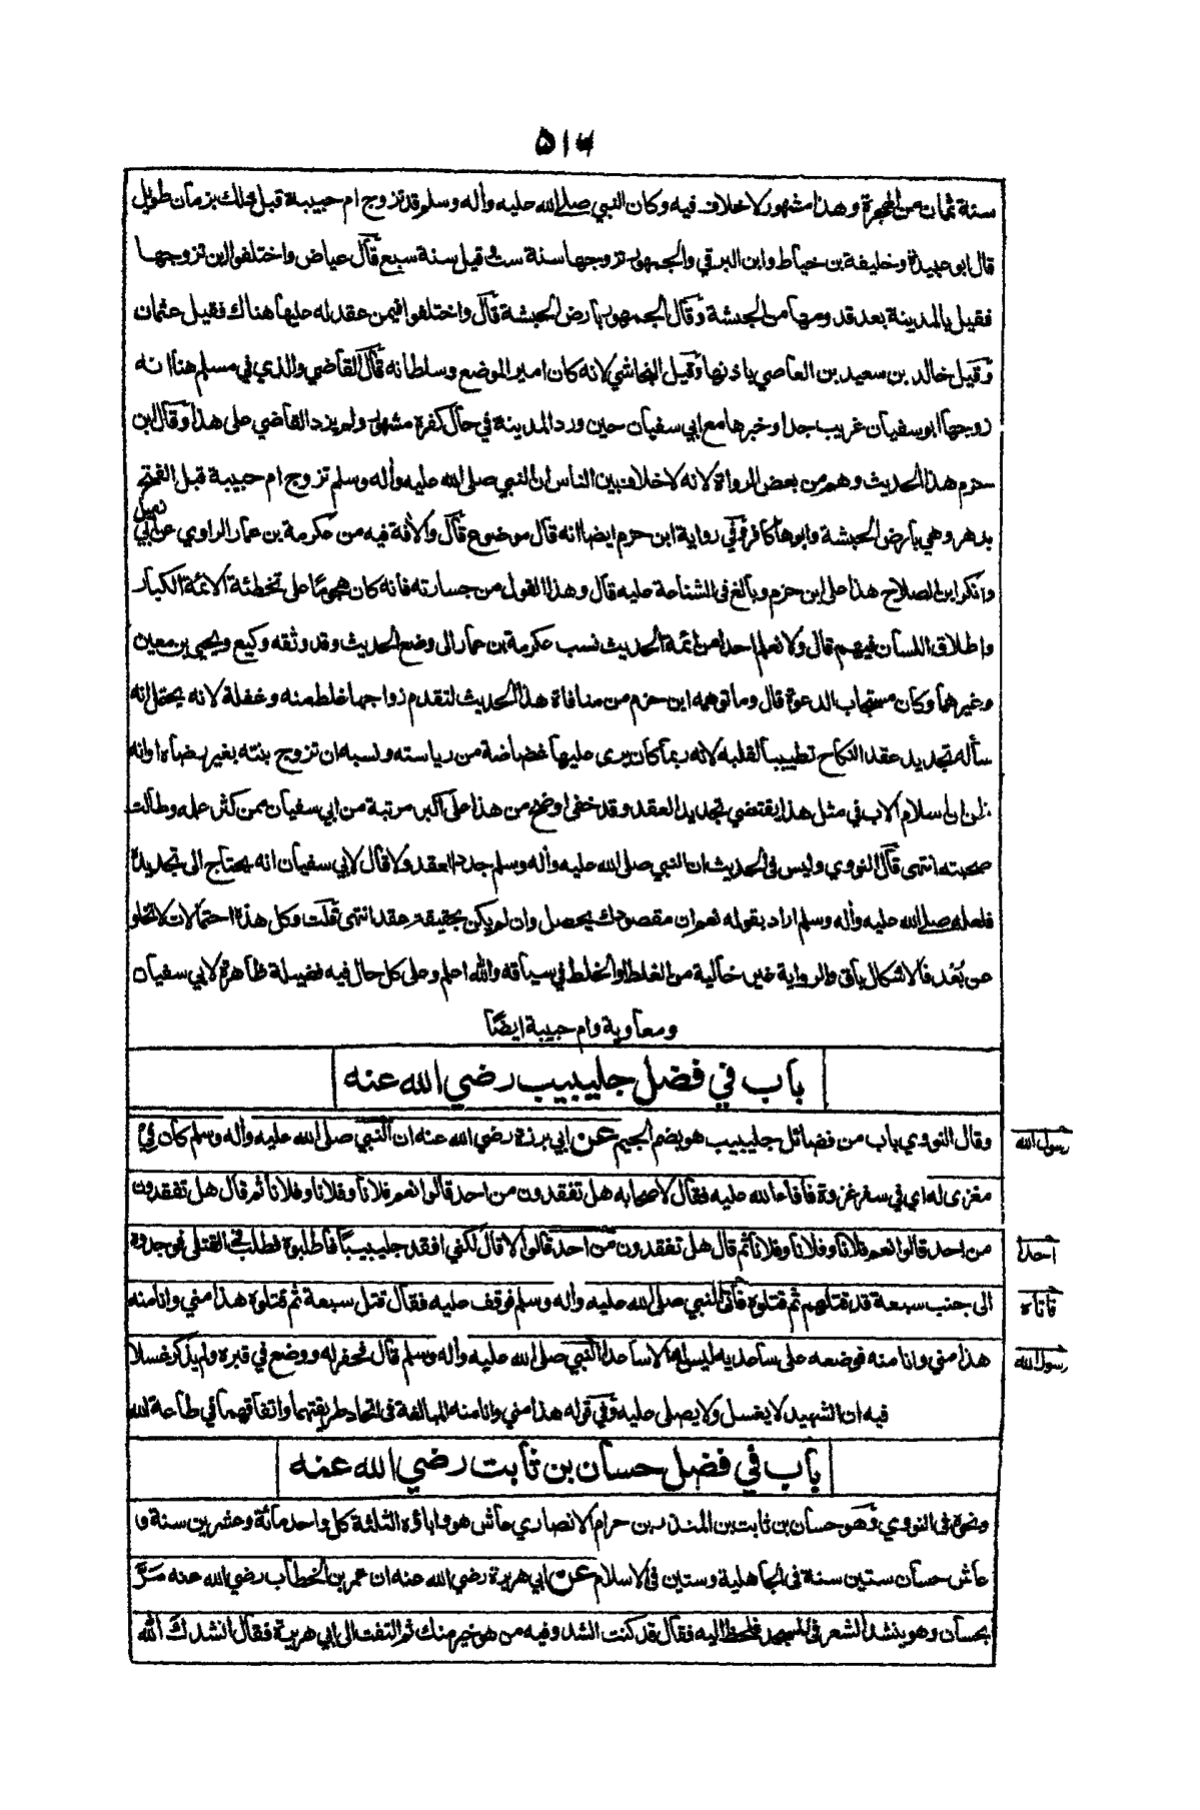 ٥١٧
سنة ثمان من الهجرة وهذا مشهور لا خلاف فيه وكان النبي صلى الله عليه وأله وسلم قد تزوج ام حبيبة قبل ذلك بزمان طويل
قال ابو عبيدة وخليفة بن خياط وابن البرقي والجمهور تزوجها سنة ست وقيل سنة سبع قال عياض واختلفوا اين تزوجها
فقيل بالمدينة بعد قدومها من الحبشة وقال الجمهور بارض الحبشة قال واختلفوا فيمن عقد له عليها هناك فقيل عثمان
وقيل خالد بن سعيد بن العاصي باذنها وقيل النجاشي لانه كان امير الموضع وسلطانه قال القاضي والذي في مسلم هنا انه
زوجها ابو سفيان غريب جدا وخبرها مع ابي سفيان حين ورد المدينة في حال كفره مشهور ولم يزد القاضي على هذا وقال ابن
حزم هذا الحديث وهم من بعض الرواة لانه لا خلاف بين الناس ان النبي صلى الله عليه وأله وسلم تزوج ام حبيبة قبل الفتح
بدهر وهي بارض الحبشة وابوها كافر وفي رواية ابن حزم ايضا انه قال موضوع قال والأفة فيه من عكرمة بن عمار الراوي عن ابي زميل
وانكر ابن الصلاح هذا على ابن حزم وبالغ في الشناعة عليه قال وهذا القول من جسارته فانه كان هجوما على تخطئة الائمة الكبار
واطلاق اللسان فيهم قال ولا نعلم احدا من ائمة الحديث نسب عكرمة بن عمار الى وضع الحديث وقد وثقه وكيع ويحيى بن معين
وغيرهما وكان مستجاب الدعوة قال وما توهمه ابن حزم من منافاة هذا الحديث لتقدم زواجها غلط منه وغفلة لانه يحتمل انه
سأله تجديد عقد النكاح تطييبا لقلبه لانه ربما كان يرى عليها غضاضة من رياسته ونسبه ان تزوج بنته بغير رضاه او انه
ظن ان اسلام الاب في مثل هذا يقتضي تجديد العقد وقد خفي اوضح من هذا على اكبر مرتبة من ابي سفيان ممن كثر علمه وطالت
صحبته انتهى قال النووي وليس في الحديث ان النبي صلى الله عليه وأله وسلم جدد العقد ولا قال لابي سفيان انه يحتاج الى تجديده
فلعله صلى الله عليه وأله وسلم اراد بقوله نعم ان مقصودك يحصل وان لم يكن بحقيقة عقد انتهى قلت وكل هذه احتمالات لا تخلو
عن بُعد فالاشكال باق والرواية غير خالية من الغلط والخلط في سياقه والله اعلم وعلى كل حال فيه فضيلة ظاهرة لابي سفيان
ومعاوية وام حبيبة ايضًا
باب في فضل جليبيب رضي الله عنه
وقال النووي باب من فضائل جليبيب هو بضم الجيم عن ابي برزة رضي الله عنه ان النبي صلى الله عليه وأله وسلم كان في
رسول الله
مغزى له اي في سفر غزوة فأفاء الله عليه فقال لاصحابه هل تفقدون من احد قالوا نعم فلانا وفلانا وفلانا ثم قال هل تفقدون
من احد قالوا نعم فلانا وفلانا وفلانا ثم قال هل تفقدون من احد قالوا لا قال لكني افقد جليبيبًا فاطلبوه فطلب في القتلى فوجدوه
احدا
الى جنب سبعة قد قتلهم ثم قتلوه فأتى النبي صلى الله عليه وأله وسلم فوقف عليه فقال قتل سبعة ثم قتلوه هذا مني وانا منه
فاتاه
هذا مني وانا منه فوضعه على ساعديه ليس له الا ساعدا النبي صلى الله عليه وأله وسلم قال فحفر له ووضع في قبره ولم يذكر غسلا
رسول الله
فيه ان الشهيد لا يغسل ولا يصلى عليه وفي قوله هذا مني وانا منه المبالغة في اتحاد طريقتهما واتفاقهما في طاعة الله
باب في فضل حسان بن ثابت رضي الله عنه
ونحوه في النووي وهو حسان بن ثابت بن المنذر بن حرام الانصاري عاش هو واباؤه الثلثة كل واحد مائة وعشرين سنة و
عاش حسان ستين سنة في الجاهلية وستين في الاسلام عن ابي هريرة رضي الله عنه ان عمر بن الخطاب رضي الله عنه مَرَّ
بحسان وهو ينشد الشعر في المسجد فلحظ اليه فقال قد كنت انشد وفيه من هو خير منك ثم التفت الى ابي هريرة فقال انشدك الله